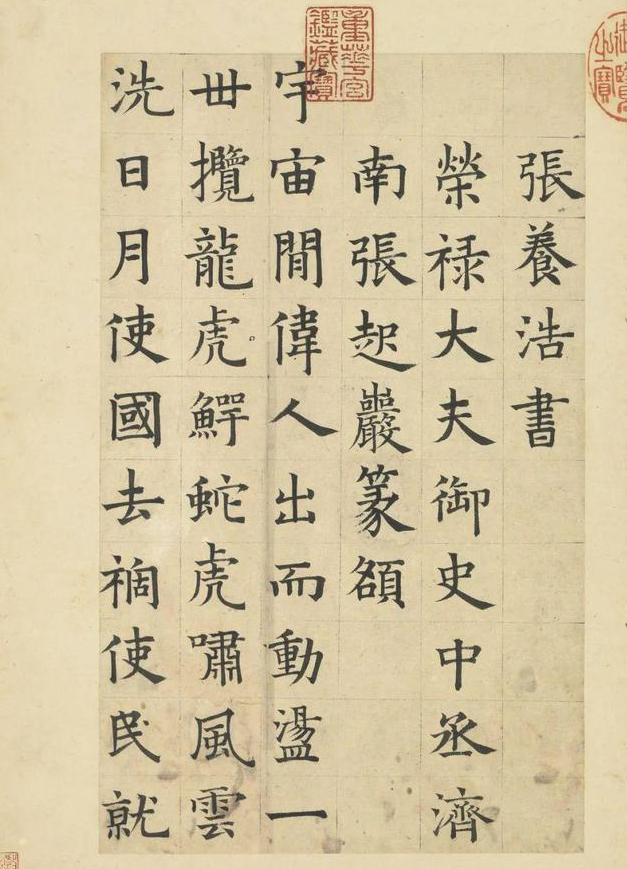 張養浩書
榮禄大夫御史中丞濟
南張起巖篆額
宇宙間偉人出而動盪一
丗攬龍虎鰐蛇虎嘯風雲
洗日月使國去禍使民就
重華宮
鑑藏寶